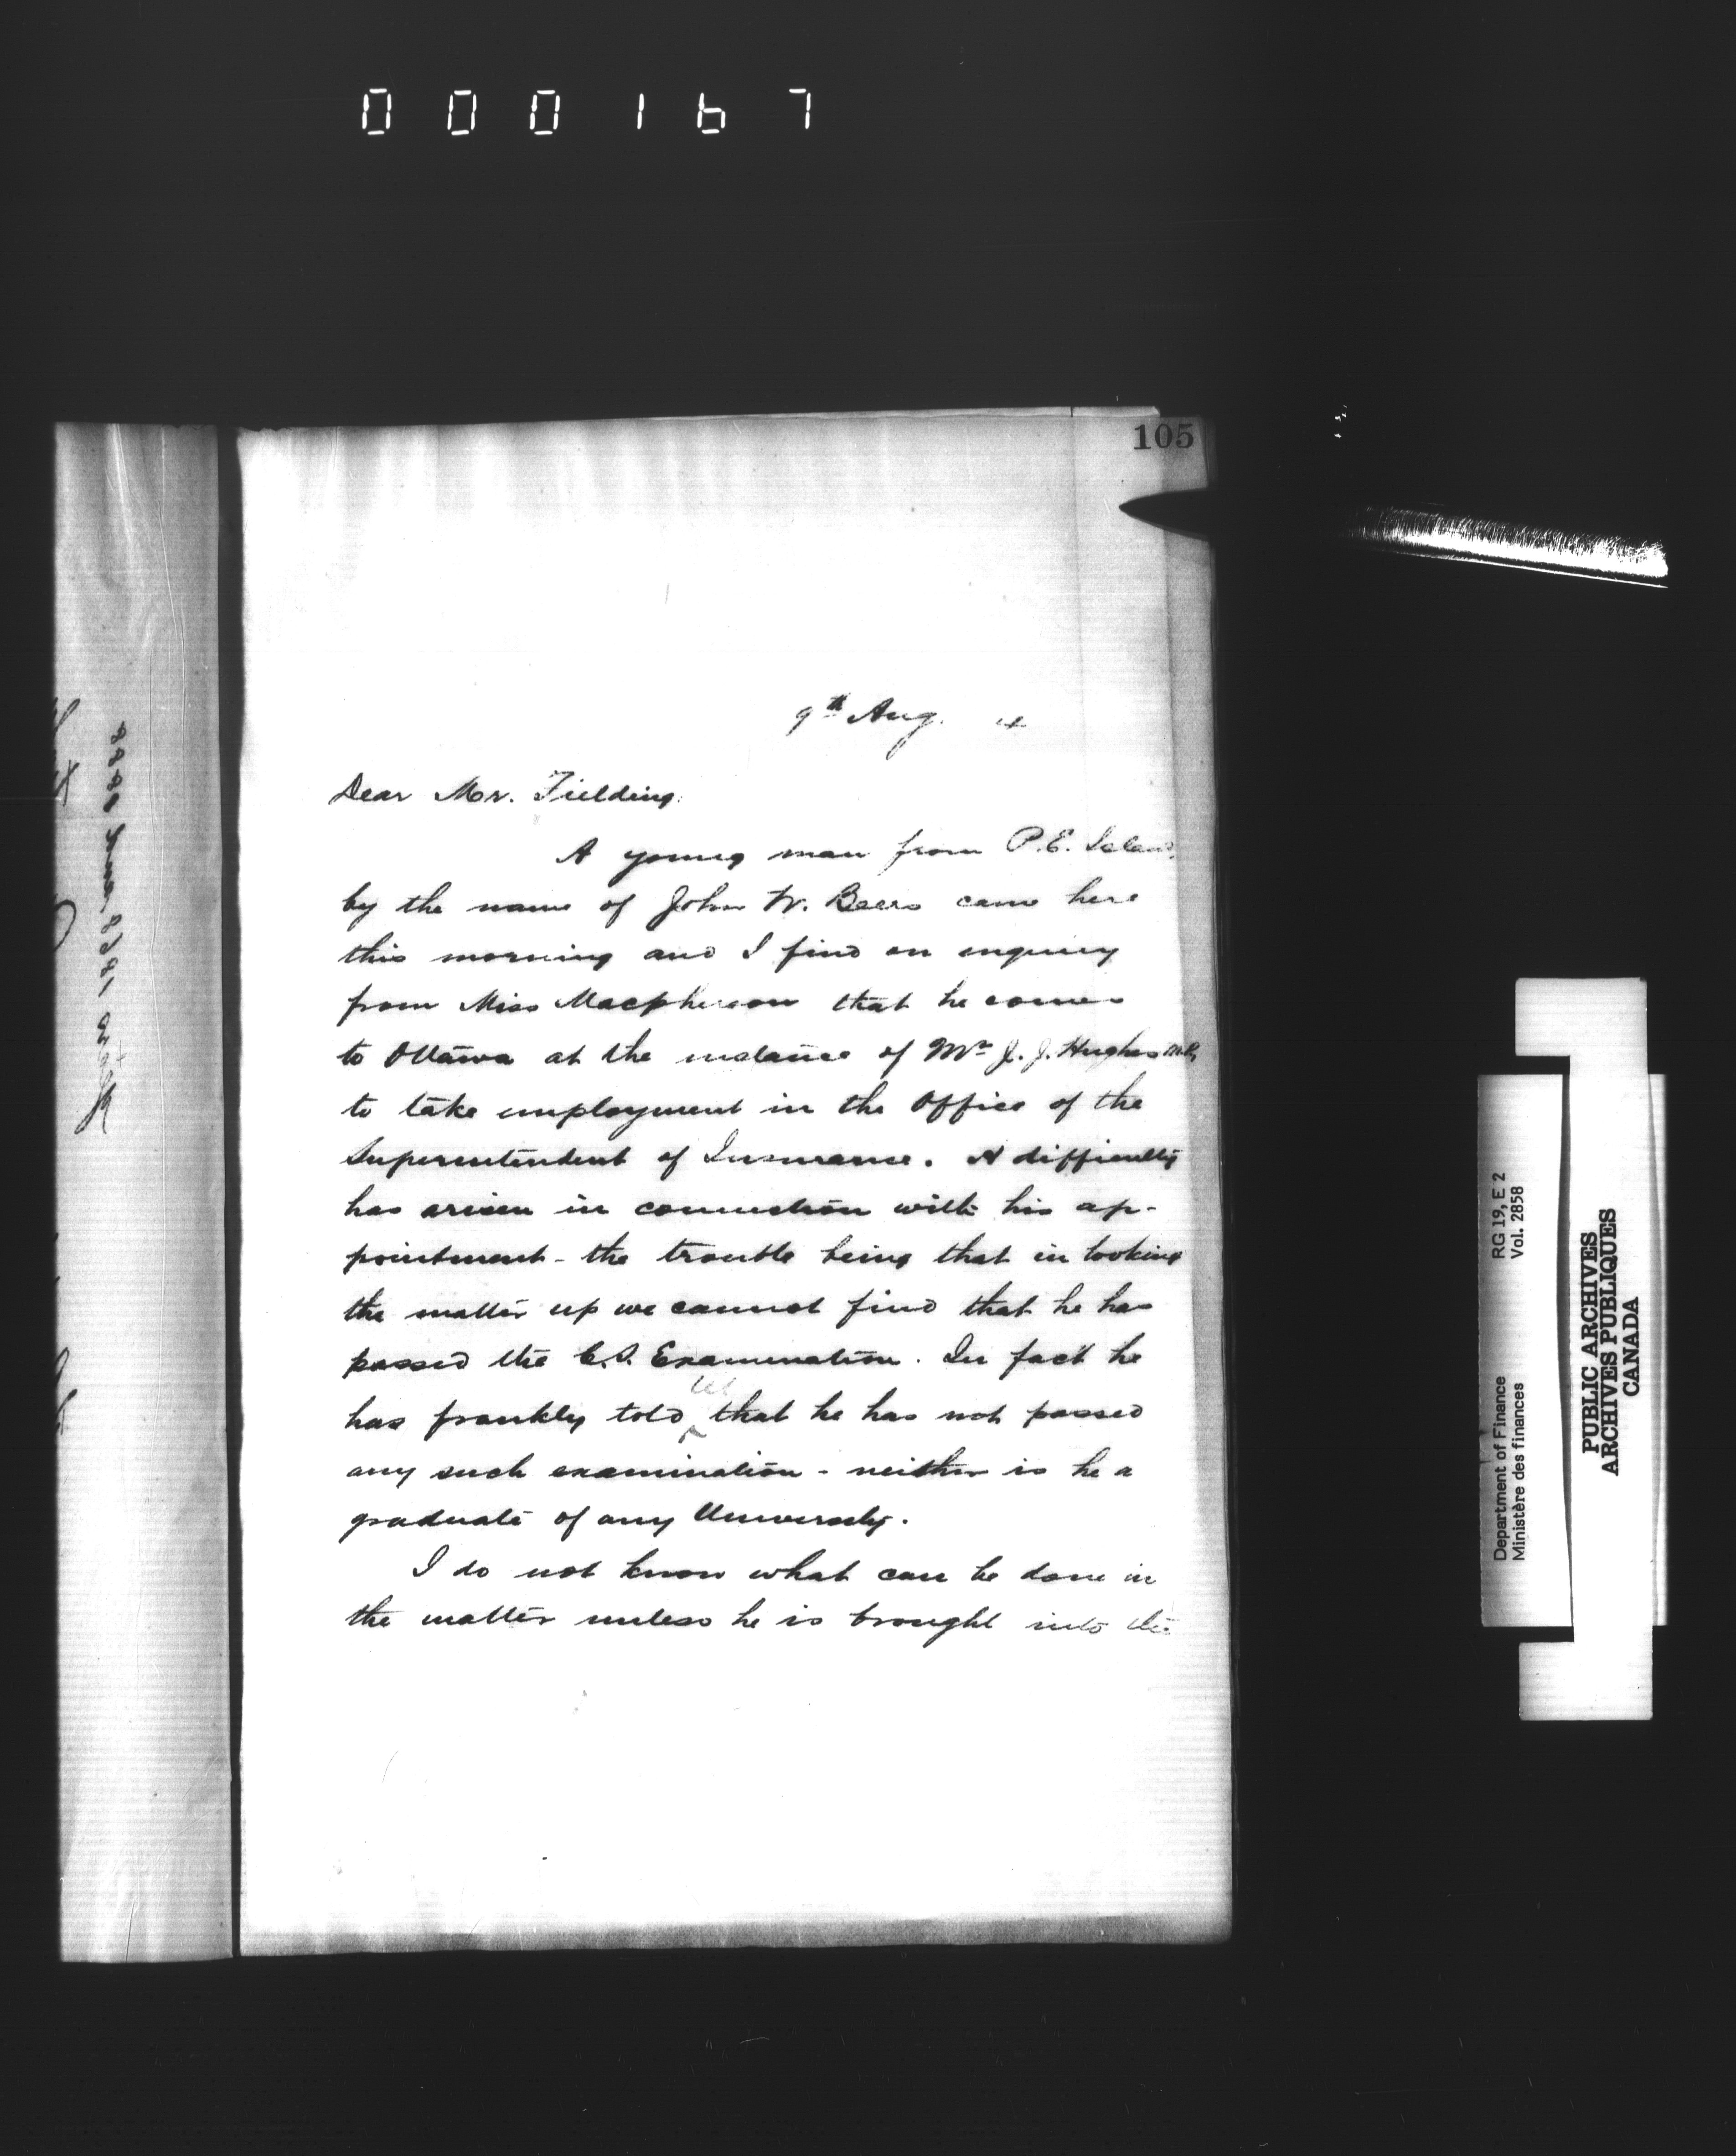 000167
105
9th Aug. 4
Dear Mr. Fielding:
A young man from P.E. Island,
by the name of John W. Beers came here
this morning and I find on enquiry
from Miss Macpherson that he comes
to Ottawa at the instance of Mr J. J. Hughes M.P.
to take employment in the Office of the
Superintendent of Insurance. A difficulty
has arisen in connection with his ap-
pointment - the trouble being that in looking
the matter up we cannot find that he has
passed the C.S. Examination. In fact he
has frankly told us that he has not passed
any such examination - neither is he a
graduate of any University.
I do not know what can be done in
the matter unless he is brought into the
Department of Finance RG 19, E 2
Ministère des finances Vol. 2858
PUBLIC ARCHIVES
ARCHIVES PUBLIQUES
CANADA